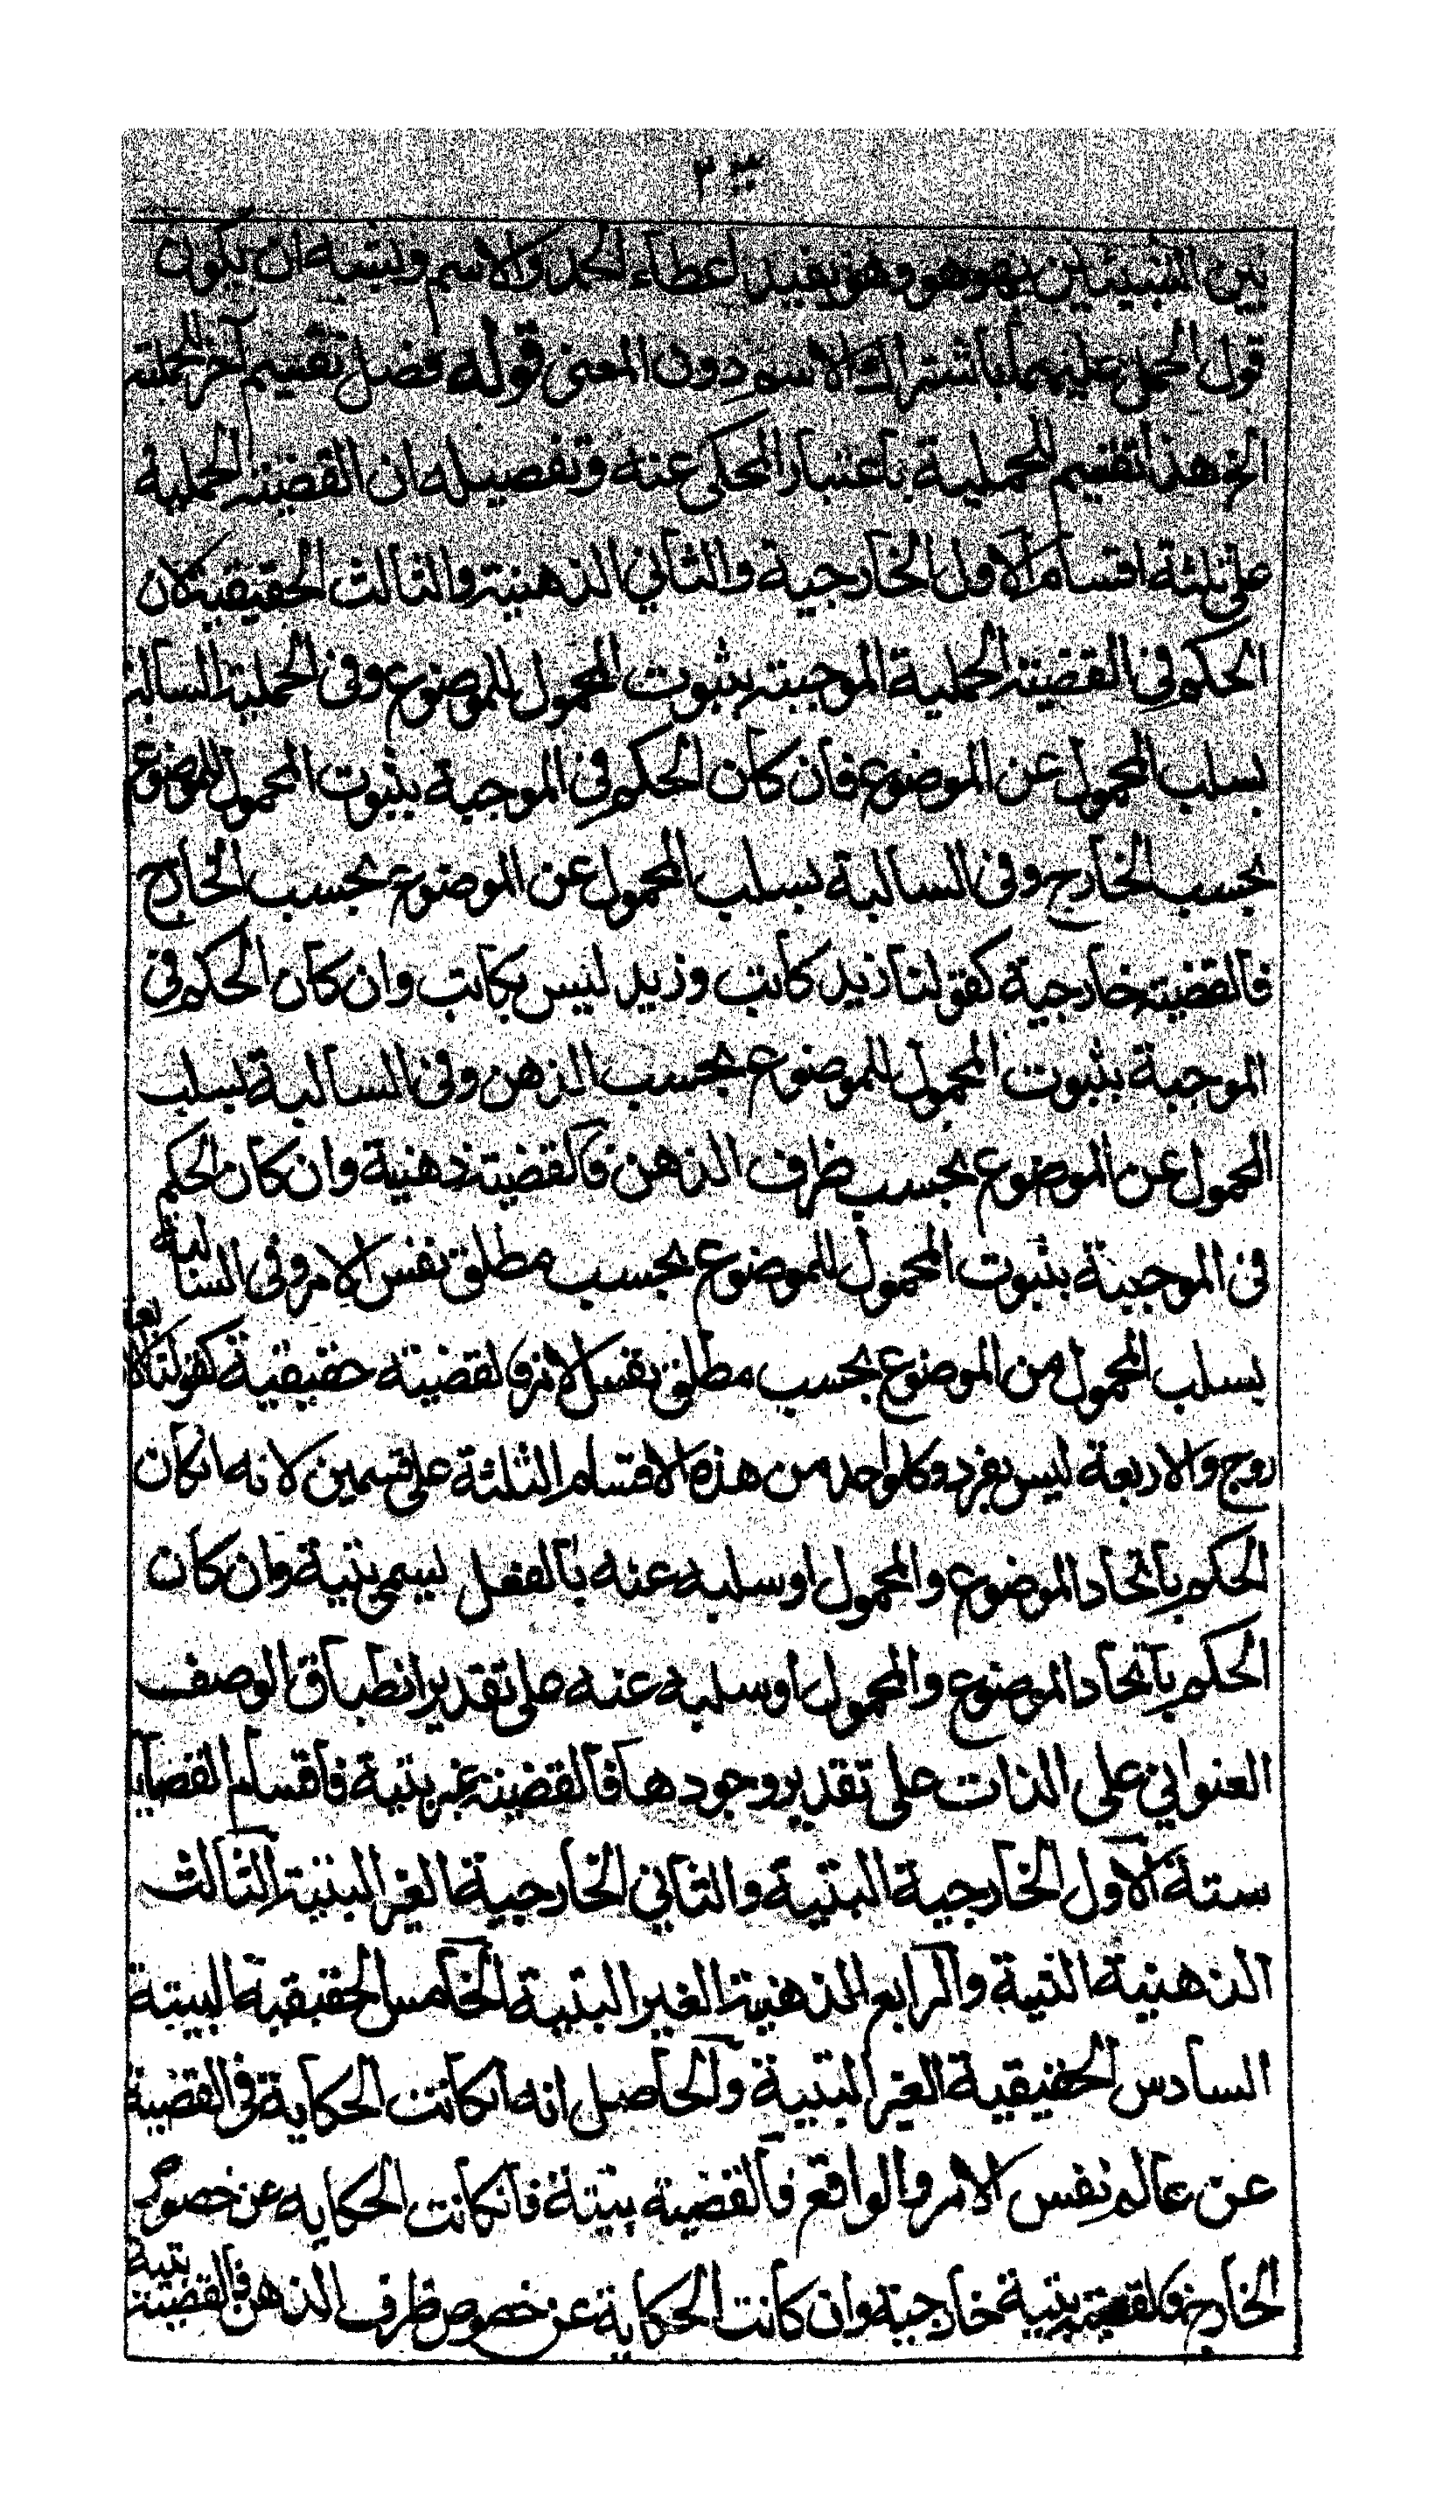 بين الشيئين بهو هو وهو يفيد اعطاء الحد والاسم ويشبه ان يكون
قول الحمل عليهما باشتراك الاسم دون المعنى قوله فصل تقسيم آخر للحملية
الخ هذا تقسيم للحملية باعتبار المحكى عنه وتفصيله ان القضية الحملية
على ثلثة اقسام الاول الخارجية والثاني الذهنية والثالث الحقيقية لان
الحكم في القضية الحملية الموجبة بثبوت المحمول للموضوع وفي الحملية السالبة
بسلب المحمول عن الموضوع فان كان الحكم في الموجبة بثبوت المحمول للموضوع
بحسب الخارج وفي السالبة بسلب المحمول عن الموضوع بحسب الخارج
فالقضية خارجية كقولنا زيد كاتب وزيد ليس بكاتب وان كان الحكم في
الموجبة بثبوت المحمول للموضوع بحسب الذهن وفي السالبة بسلب
المحمول عن الموضوع بحسب ظرف الذهن فالقضية ذهنية وان كان الحكم
في الموجبة بثبوت المحمول للموضوع بحسب مطلق نفس الامر وفي السالبة
بسلب المحمول من الموضوع بحسب مطلق نفس الامر فالقضية حقيقية كقولنا الاربعة
زوج والاربعة ليس بفرد وكل واحد من هذه الاقسام الثلثة على قسمين لانه ان كان
الحكم باتحاد الموضوع والمحمول او سلبه عنه بالفعل يسمى بتية وان كان
الحكم باتحاد الموضوع والمحمول او سلبه عنه على تقدير انطباق الوصف
العنواني على الذات على تقدير وجودها فالقضية غير بتية فاقسام القضايا
ستة الاول الخارجية البتية والثاني الخارجية الغير البتية الثالث
الذهنية البتية والرابع الذهنية الغير البتية الخامس الحقيقية البتية
السادس الحقيقية الغير البتية والحاصل انه ان كانت الحكاية في القضية
عن عالم نفس الامر والواقع فالقضية بتية فان كانت الحكاية عن خصوص
الخارج فالقضية بتية خارجية وان كانت الحكاية عن خصوص ظرف الذهن فالقضية بتية